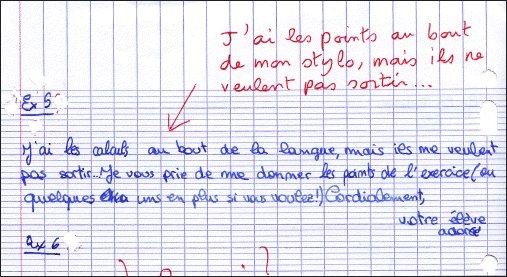 J'ai les points au bout
de mon stylo, mais ils ne
veulent pas sortir...
Ex 5
J'ai les calculs au bout de la langue, mais ils ne veulent
pas sortir... Je vous prie de me donner les points de l'exercice (ou
quelques uns en plus si vous voulez!) Cordialement,
votre élève
adoré
Ex 6